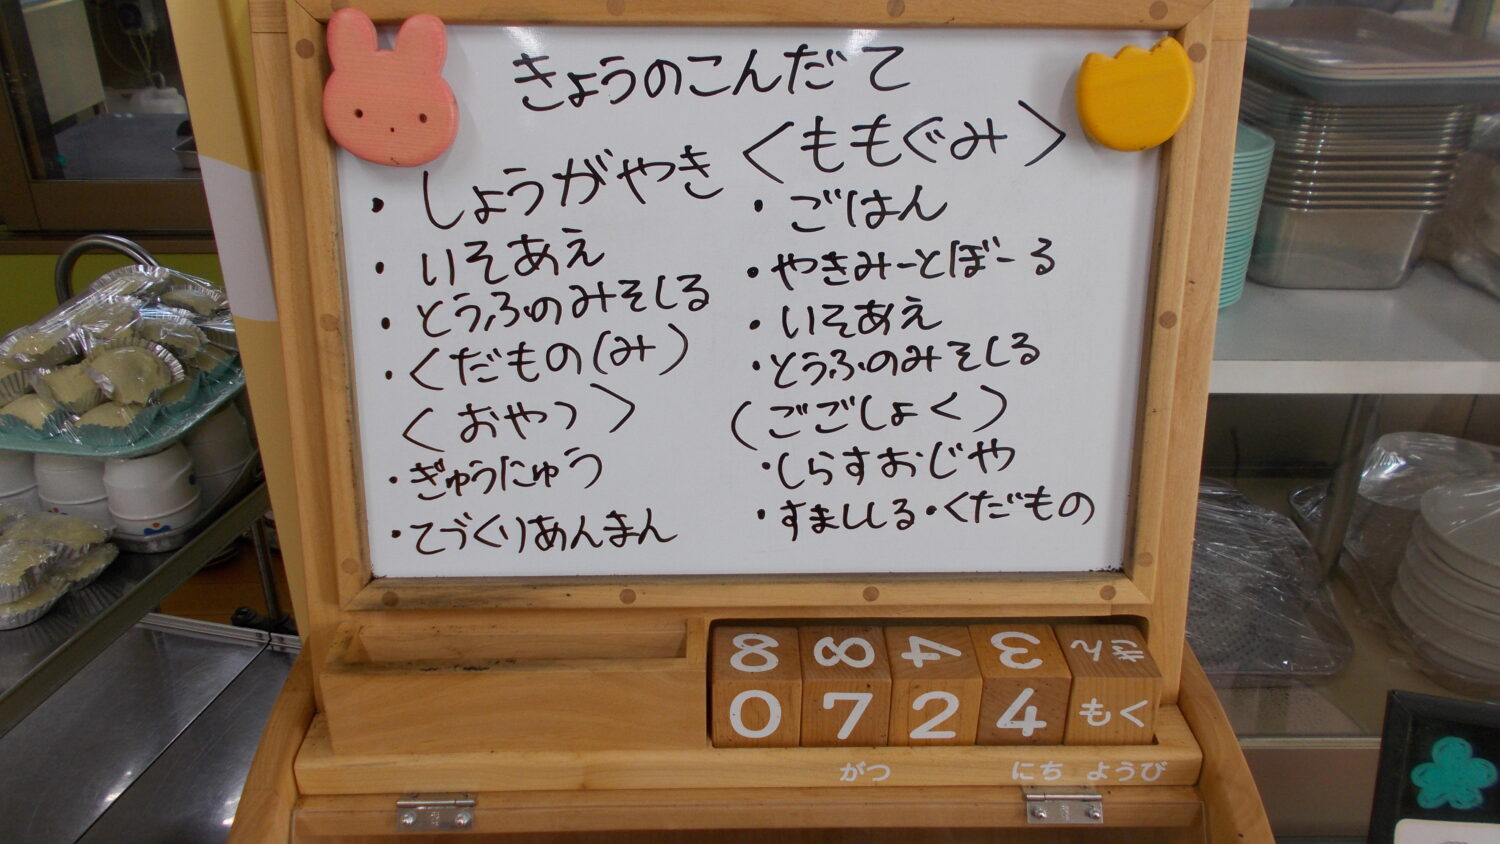 きょうのこんだて
・しょうがやき
・いそあえ
・とうふのみそしる
・くだもの(み)
〈おやつ〉
・ぎゅうにゅう
・てづくりあんまん
〈ももぐみ〉
・ごはん
・やきみーとぼーる
・いそあえ
・とうふのみそしる
(ごごしょく)
・しらすおじや
・すましじる・くだもの
8 8 4 3 きん
0 7 2 4 もく
がつ にち ようび